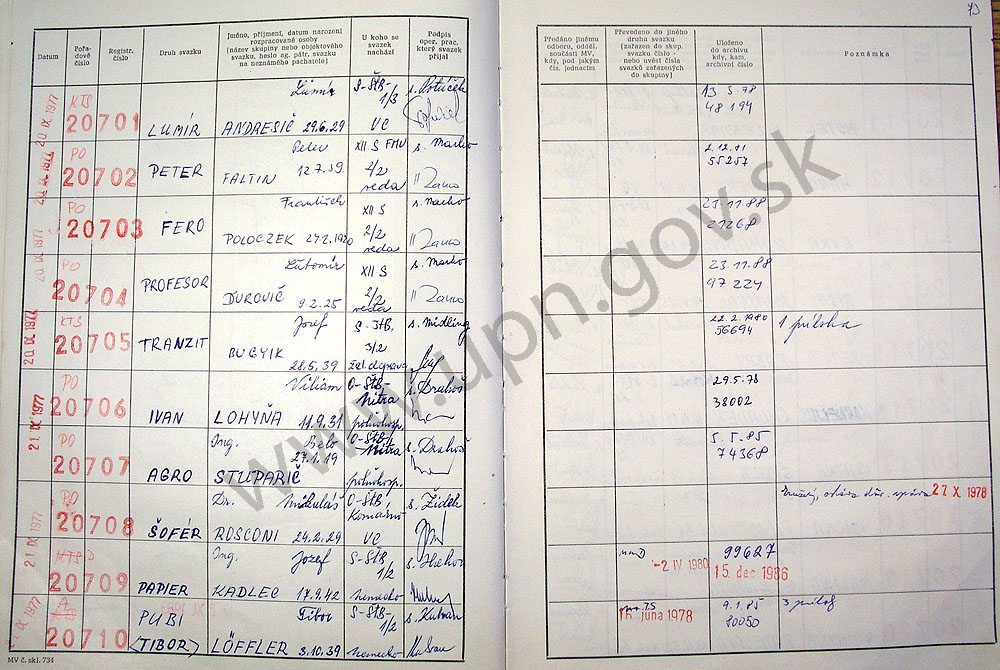 73
Datum
Pořadové číslo
Registr. číslo
Druh svazku
Jméno, příjmení, datum narození
rozpracované osoby
(název skupiny nebo objektového
svazku, heslo ag. pátr. svazku
na neznámého pachatele)
U koho se
svazek
nachází
Podpis
oper. prac.
který svazek
přijal
Předáno jinému
odboru, odděl.
součásti MV,
kdy, pod jakým
čís. jednacím
Převedeno do jiného
druhu svazku
(zařazen do skup.
svazku číslo -
nebo uvést čísla
svazků zařazených
do skupiny)
Uloženo
do archivu
kdy, kam,
archivní číslo
Poznámka
20. IX. 1977 KTS 20701 LUMÍR
ANDRESIČ 29.6.29
S-ŠTB-
1/3
VC
13.5.78
48194
20. IX. 1977 PO 20702 PETER
Peter
FALTIN 12.7.39
XII S FMV
2/2
s. Macho
2.12.81
55257
20. IX. 1977 PO 20703 FERO
František
POLOCZEK
XII S
2/2
s. Macho
21.11.88
20. IX. 1977 PO 20704 PROFESOR
Ľubomír
ĎUROVIČ 9.2.25
XII S
2/2
s. Macho
23.11.88
97224
20. IX. 1977 KTS 20705 TRANZIT
Jozef
BUGYIK 28.5.39
S-ŠTB,
3/2
s. Midling
22.2.1980
56694
1 príloha
21. IX. 1977 PO 20706 IVAN
Viliam
LOHYŇA 11.9.31
O-ŠTB-
Nitra
poľnohosp.
s. Drahoš
29.5.78
38002
PO 20707 AGRO
Ing.
27.1.19
STUPARIČ
O-ŠTB-
Nitra
poľnohosp.
s. Drahoš
5.5.85
74368
21. IX. 1977 PO 20708 ŠOFÉR
Dr. Mikuláš
ROSCONI 24.2.29
O-ŠTB,
Komárno
VC
s. Židek
27. X. 1978
21. IX. 1977 KTS D 20709 PAPIER
Ing. Jozef
KADLEC 17.9.42
S-ŠTB
1/2
-2. IV. 1980
99627
15. dec 1986
IX. 1977 20710 PUBI
(TIBOR)
Tibor
LÖFFLER 3.10.39
S-ŠTB-
1/2
nemecko
16. júna 1978
9.1.85
80050
3 príloh
MV č. skl. 734
www.upn.gov.sk